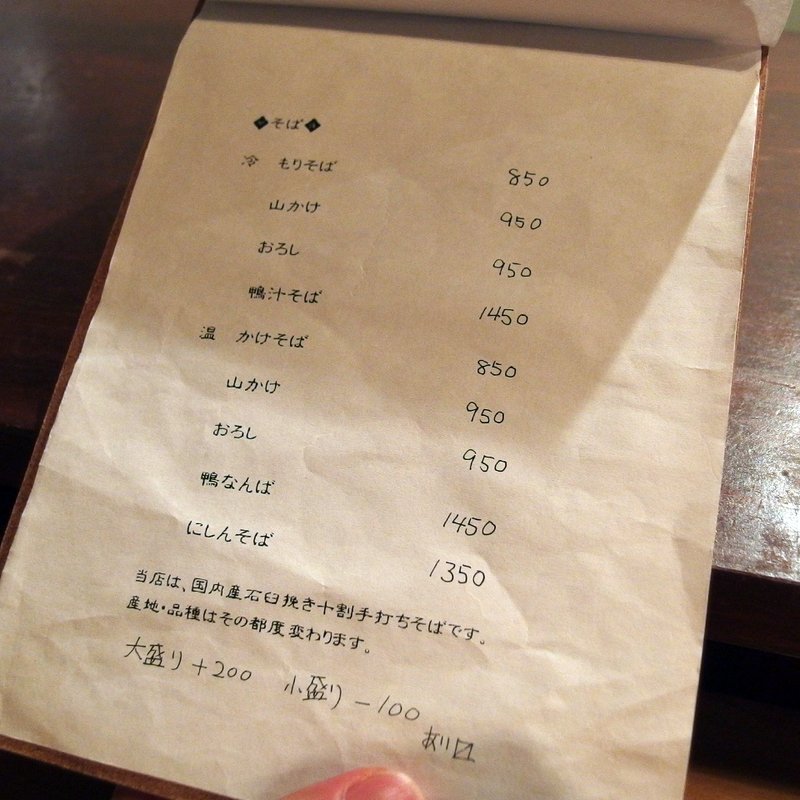 ◆そば◆
冷 もりそば 850
山かけ 950
おろし 950
鴨汁そば 1450
温 かけそば 850
山かけ 950
おろし 950
鴨なんば 1450
にしんそば 1350
当店は、国内産石臼挽き十割手打ちそばです。
産地・品種はその都度変わります。
大盛り+200 小盛り-100